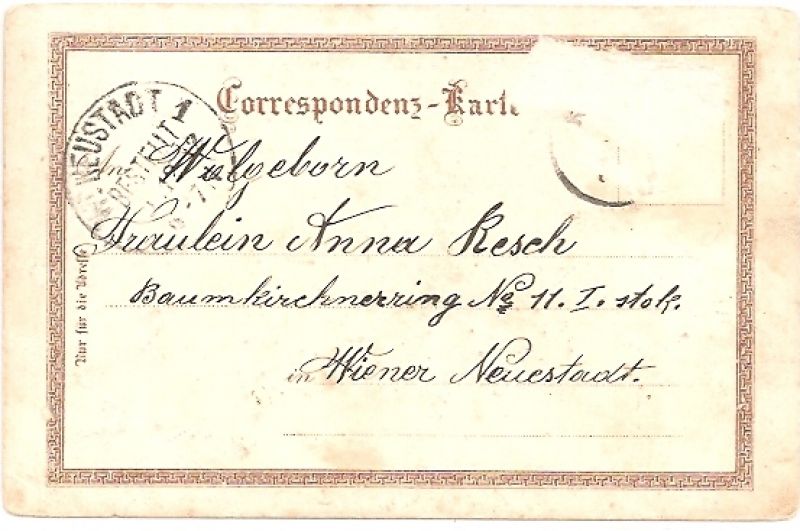 Correspondenz-Karte
NEUSTADT 1
BESTELLT
An Wolgeborn
Fräulein Anna Resch
Baumkirchnerring No 11. I. stok.
in Wiener Neuestadt.
Nur für die Adresse